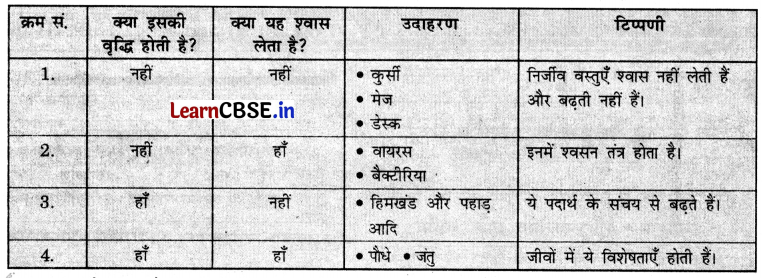 क्रम सं. क्या इसकी वृद्धि होती है? क्या यह श्वास लेता है? उदाहरण टिप्पणी
1. नहीं नहीं • कुर्सी निर्जीव वस्तुएँ श्वास नहीं लेती हैं
• मेज और बढ़ती नहीं हैं।
LearnCBSE.in
• डेस्क
2. नहीं हाँ • वायरस इनमें श्वसन तंत्र होता है।
• बैक्टीरिया
3. हाँ नहीं • हिमखंड और पहाड़ ये पदार्थ के संचय से बढ़ते हैं।
आदि
4. हाँ हाँ • पौधे • जंतु जीवों में ये विशेषताएँ होती हैं।